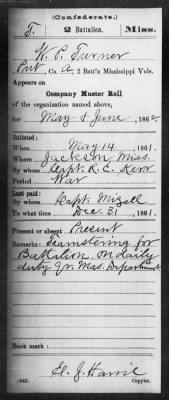 (Confederate.)
T. 2 Battalion. Miss.
W. P. Turner
Pvt, Co. A, 2 Batt'n Mississippi Vols.
Appears on
Company Muster Roll
of the organization named above,
for May & June, 1862.
Enlisted:
When May 14, 1861.
Where Jackson Miss.
By whom Capt. R. C. Kerr
Period War
Last paid:
By whom Capt. Mizell
To what time Dec. 31, 1861.
Present or absent Present
Remarks: Teamstering for
Battalion on daily
duty Qr. Mas. Department
Book mark:
(642)
Copyist.